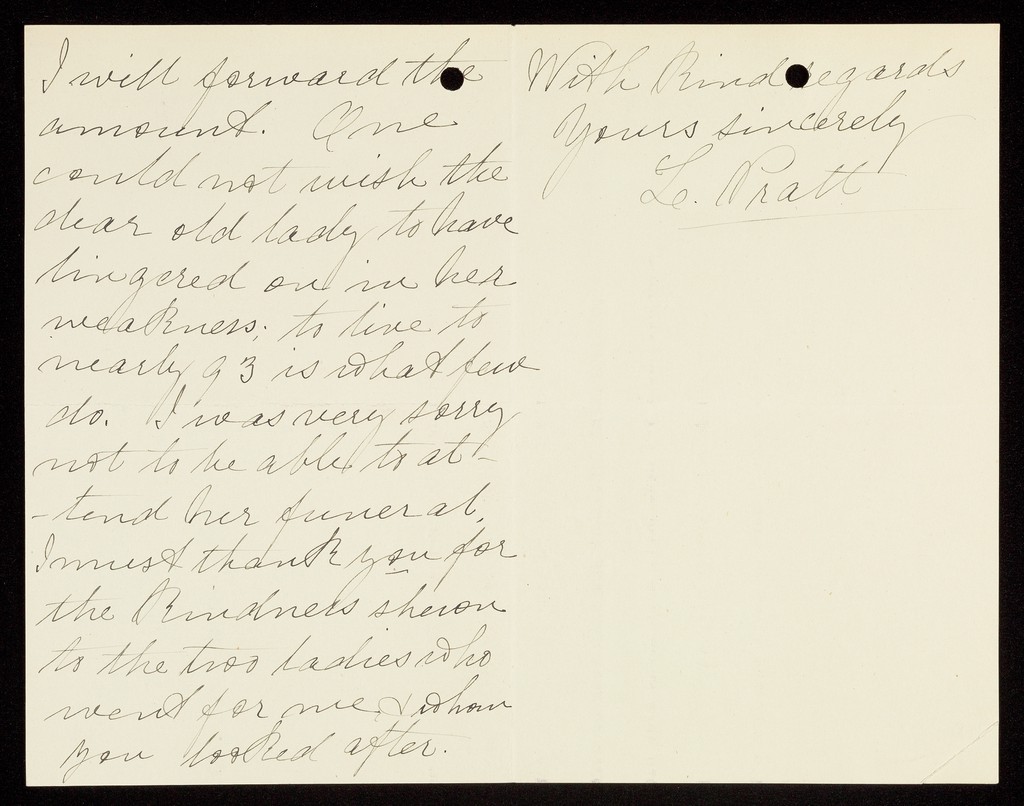 I will forward the
amount. One
could not wish the
dear old lady to have
lingered on in her
weakness; to live to
nearly 93 is what few
do. I was very sorry
not to be able to at-
-tend her funeral.
I must thank you for
the kindness shewn
to the two ladies who
went for me & whom
you looked after.
With kind regards
Yours sincerely
L. Pratt